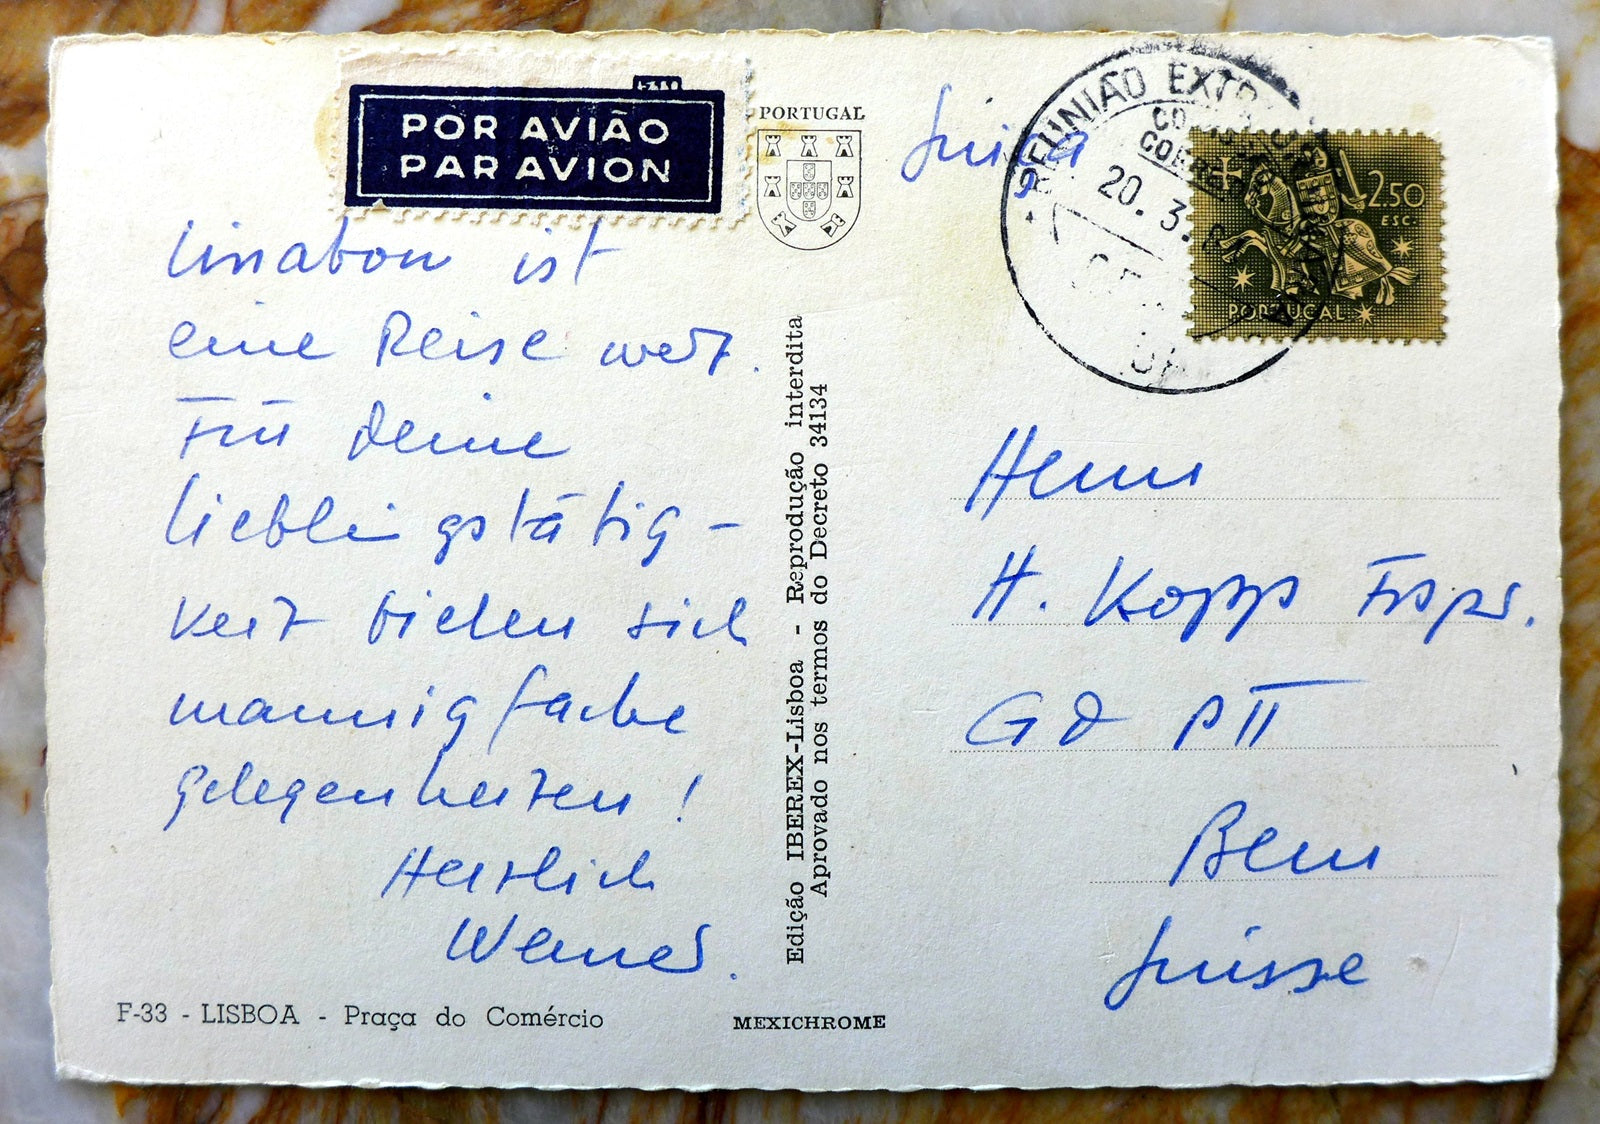 POR AVIÃO
PAR AVION
Lissabon ist
eine Reise wert.
Für Deine
Lieblingstätig-
keit bieten sich
mannigfache
Gelegenheiten!
Herzlich
Werner.
F-33 - LISBOA - Praça do Comércio
PORTUGAL
Edição IBEREX-Lisboa - Reprodução interdita
Aprovado nos termos do Decreto 34134
MEXICHROME
Suiça
REUNIÃO
20. 3.
2$50
ESC.
PORTUGAL
Herrn
H. Kopp
GD PTT
Bern
Suisse